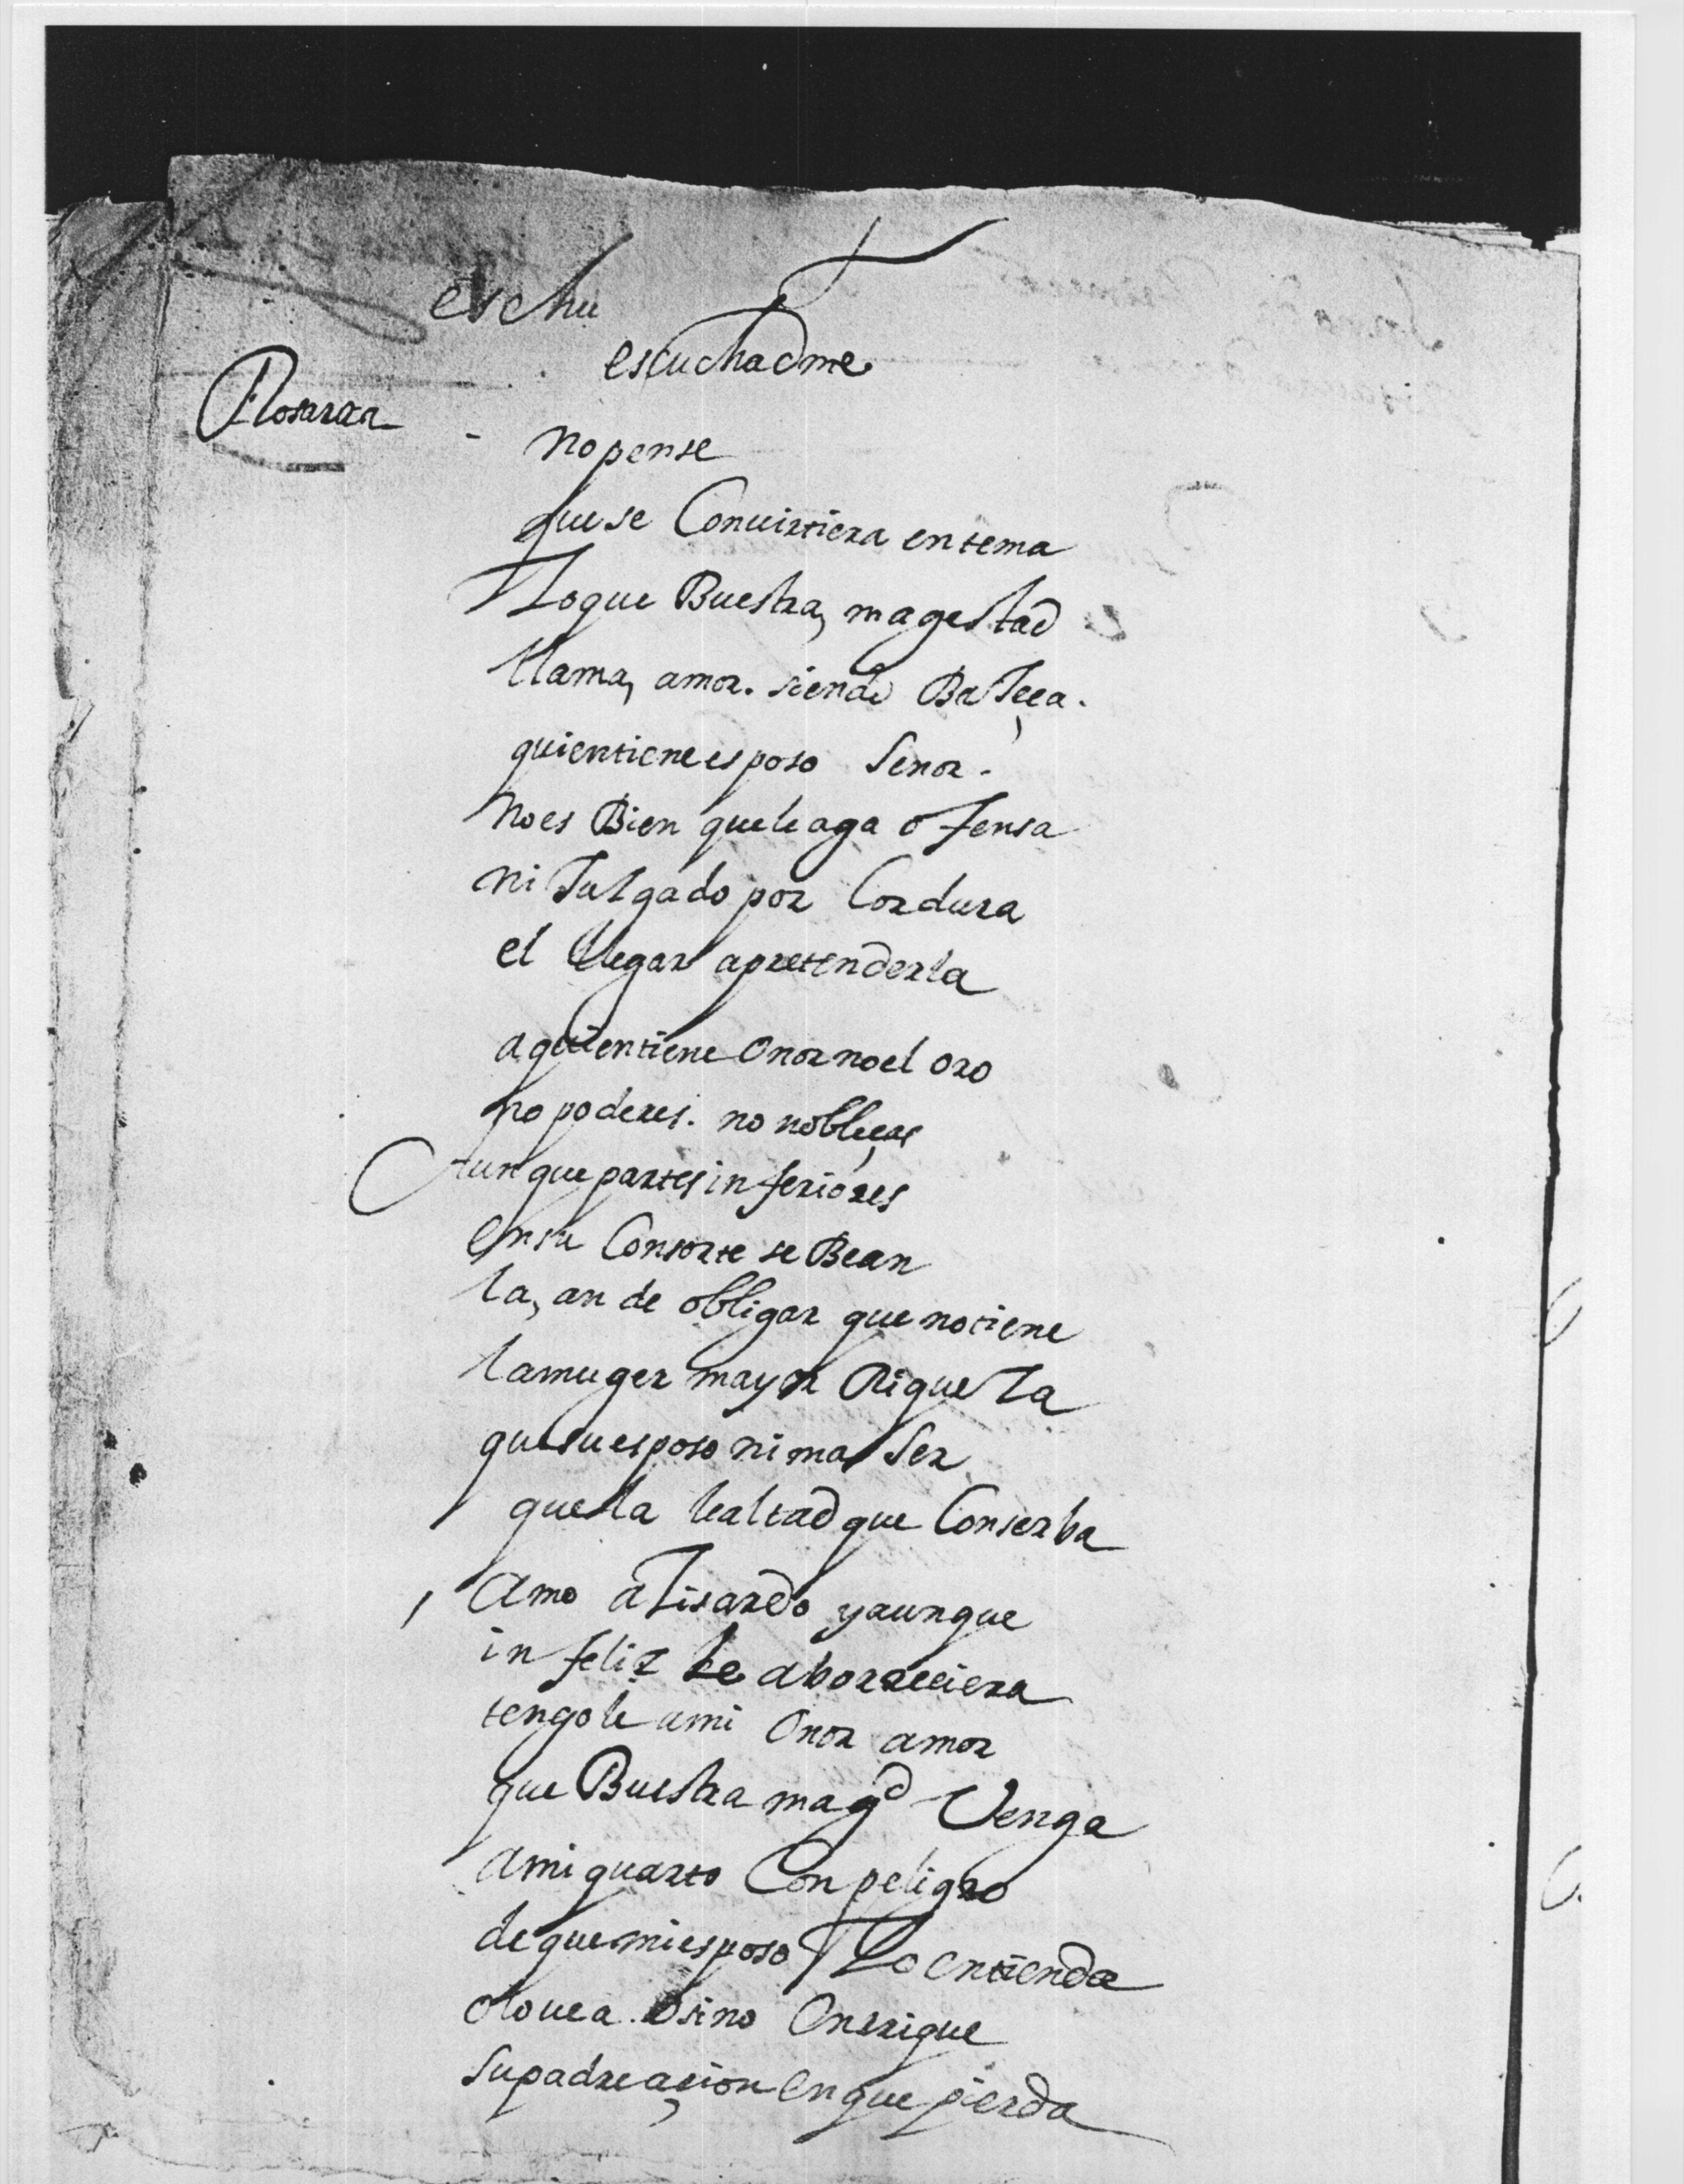 eschu
escuchadme
Rosaura
no pense
que se Conuirtiera en tema
lo que Buestra magestad
llama, amor. siendo Bajeça.
quien tiene esposo Senor.
no es Bien que le aga ofensa
ni Julgado por Cordura
el llegar a pretenderla
a quien tiene Onor no el oro
no poderes. no nobleças
Aunque partes inferiores
en su Consorte se Bean
la, an de obligar que no tiene
la muger mayor Riqueza
que su esposo ni mas Ser
que la lealtad que Conserba
Amo a lisardo y aunque
infeliz le aborreciera
tengole a mi Onor amor
que Buestra magd Venga
a mi quarto Con peligro
de que mi esposo lo entienda
o lo uea. o sino Enrrique
su padre açion en que pierda